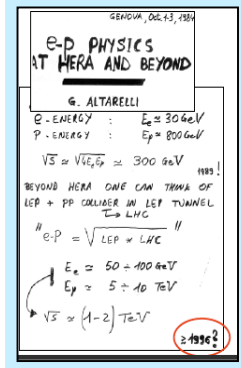 GENOVA, Oct. 1-3, 1984
e-p PHYSICS
AT HERA AND BEYOND
G. ALTARELLI
e - ENERGY : Ee ≃ 30 GeV
P - ENERGY : Ep ≃ 800 GeV
√S ≃ √4EeEp ≃ 300 GeV
1989!
BEYOND HERA ONE CAN THINK OF
LEP + PP COLLIDER IN LEP TUNNEL
↳ LHC
" e-P = √LEP × LHC "
Ee ≃ 50 ÷ 100 GeV
Ep ≃ 5 ÷ 10 TeV
√S ≃ (1-2) TeV
≥ 1996?